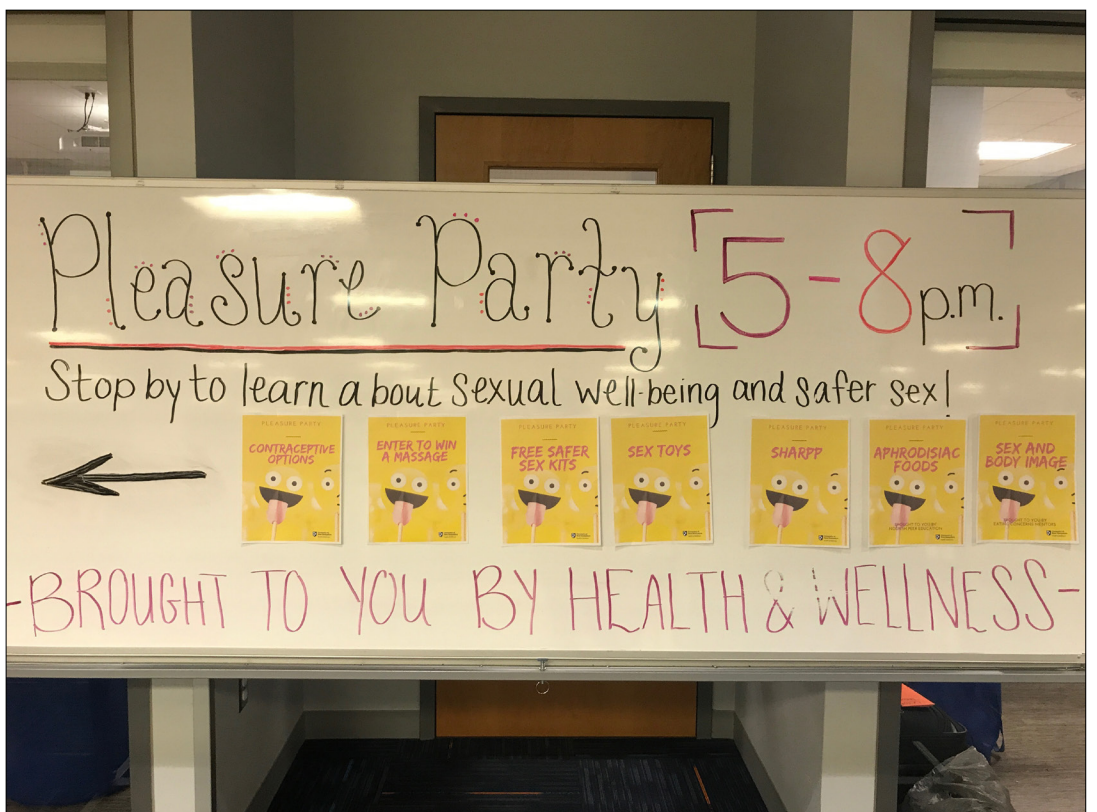 Pleasure Party [5-8 p.m.]
Stop by to learn about sexual well-being and safer sex!
PLEASURE PARTY
CONTRACEPTIVE
OPTIONS
PLEASURE PARTY
ENTER TO WIN
A MASSAGE
PLEASURE PARTY
FREE SAFER
SEX KITS
PLEASURE PARTY
SEX TOYS
PLEASURE PARTY
SHARPP
PLEASURE PARTY
APHRODISIAC
FOODS
PLEASURE PARTY
SEX AND
BODY IMAGE
-BROUGHT TO YOU BY HEALTH & WELLNESS-